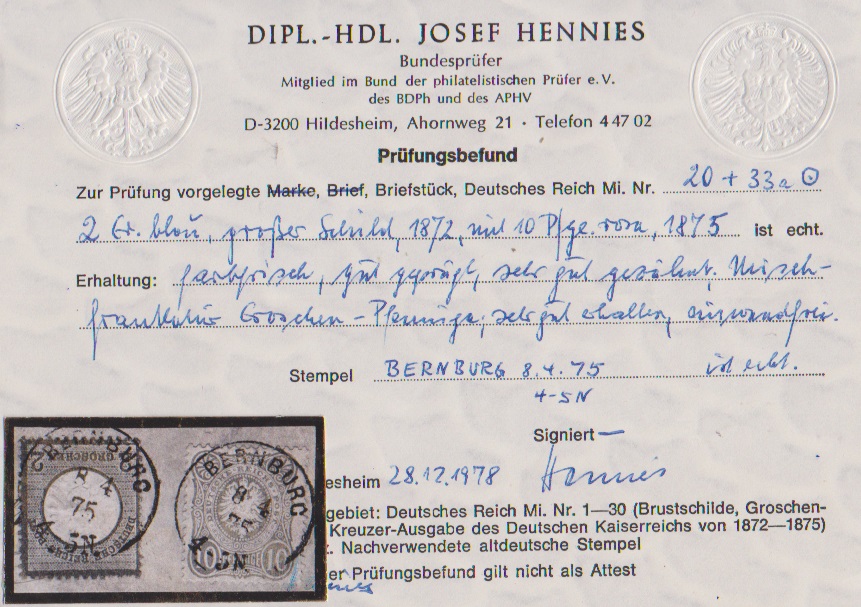 DIPL.-HDL. JOSEF HENNIES
Bundesprüfer
Mitglied im Bund der philatelistischen Prüfer e.V.
des BDPh und des APHV
D-3200 Hildesheim, Ahornweg 21 · Telefon 4 47 02
Prüfungsbefund
Zur Prüfung vorgelegte Marke, Brief, Briefstück, Deutsches Reich Mi. Nr. 20 + 33a ⊙
2 Gr. blau, großer Schild, 1872, mit 10 Pfge. rosa, 1875 ist echt.
Erhaltung: farbfrisch, gut geprägt, sehr gut gezähnt. Misch-
frankatur Groschen-Pfennige, sehr gut erhalten, einwandfrei.
Stempel BERNBURG 8.4.75 ist echt.
4-5N
Signiert —
esheim 28.12.1978 Hennies
gebiet: Deutsches Reich Mi. Nr. 1—30 (Brustschilde, Groschen-
Kreuzer-Ausgabe des Deutschen Kaiserreichs von 1872—1875)
. Nachverwendete altdeutsche Stempel
er Prüfungsbefund gilt nicht als Attest
BERNBURG
8 4
75
4-5N
BERNBURG
8 4
75
4-5N
10 10